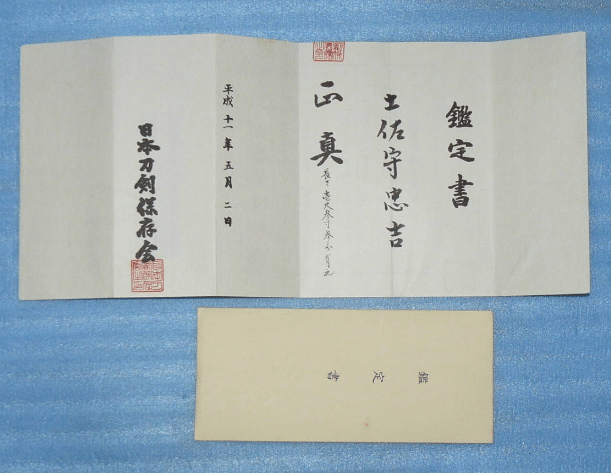 鑑定書
土佐守忠吉
正真
長サ壱尺参寸参分有之
平成十一年五月二日
日本刀剣保存会
鑑定書